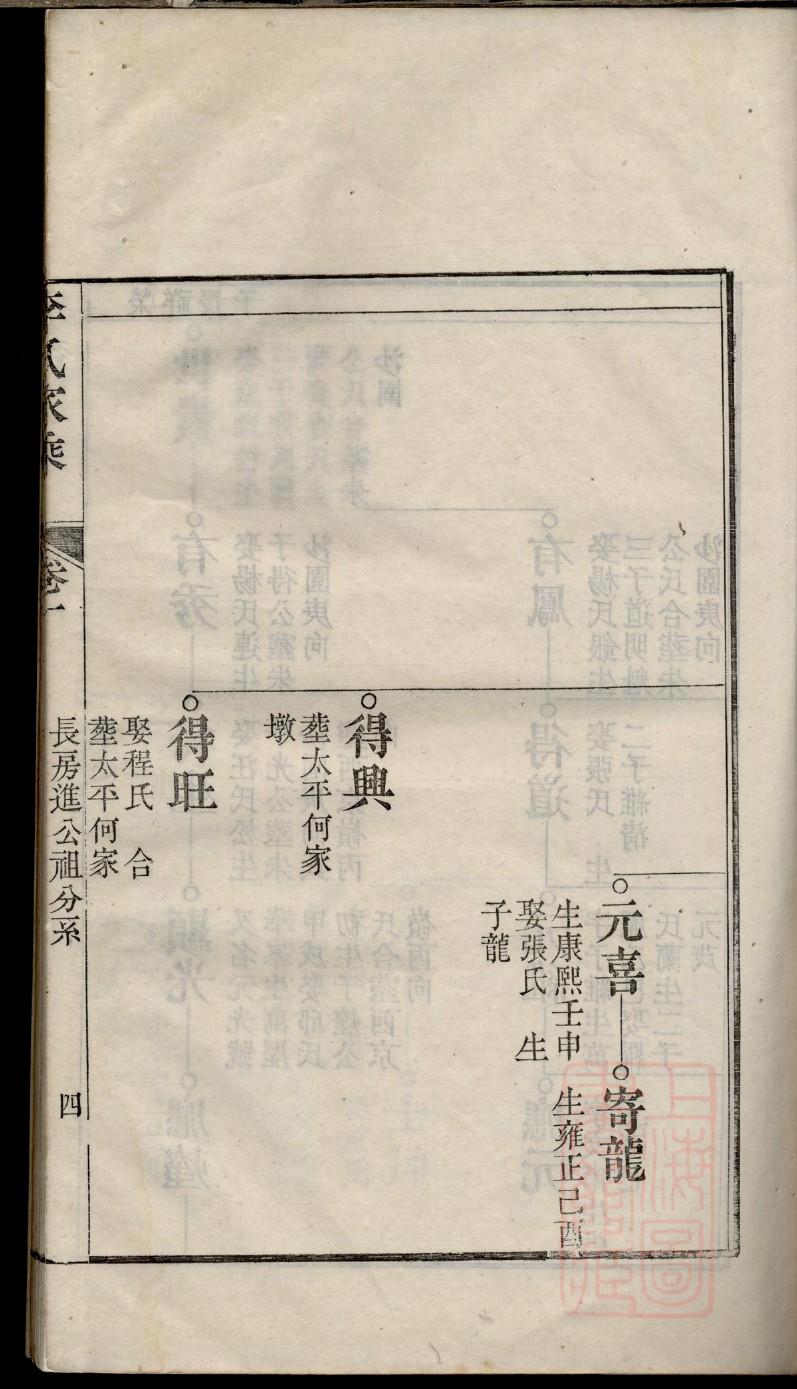 元喜
生康熙壬申
娶張氏 生
子龍
寄龍
生雍正己酉
得興
塟太平何家
墩
得旺
娶程氏 合
塟太平何家
李氏家乘
卷一
長房進公祖分系
四